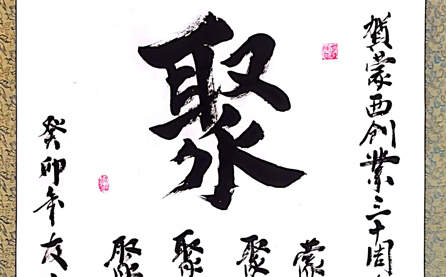 賀蒙西创業三十周
聚
蒙
聚
聚
聚
癸卯年友